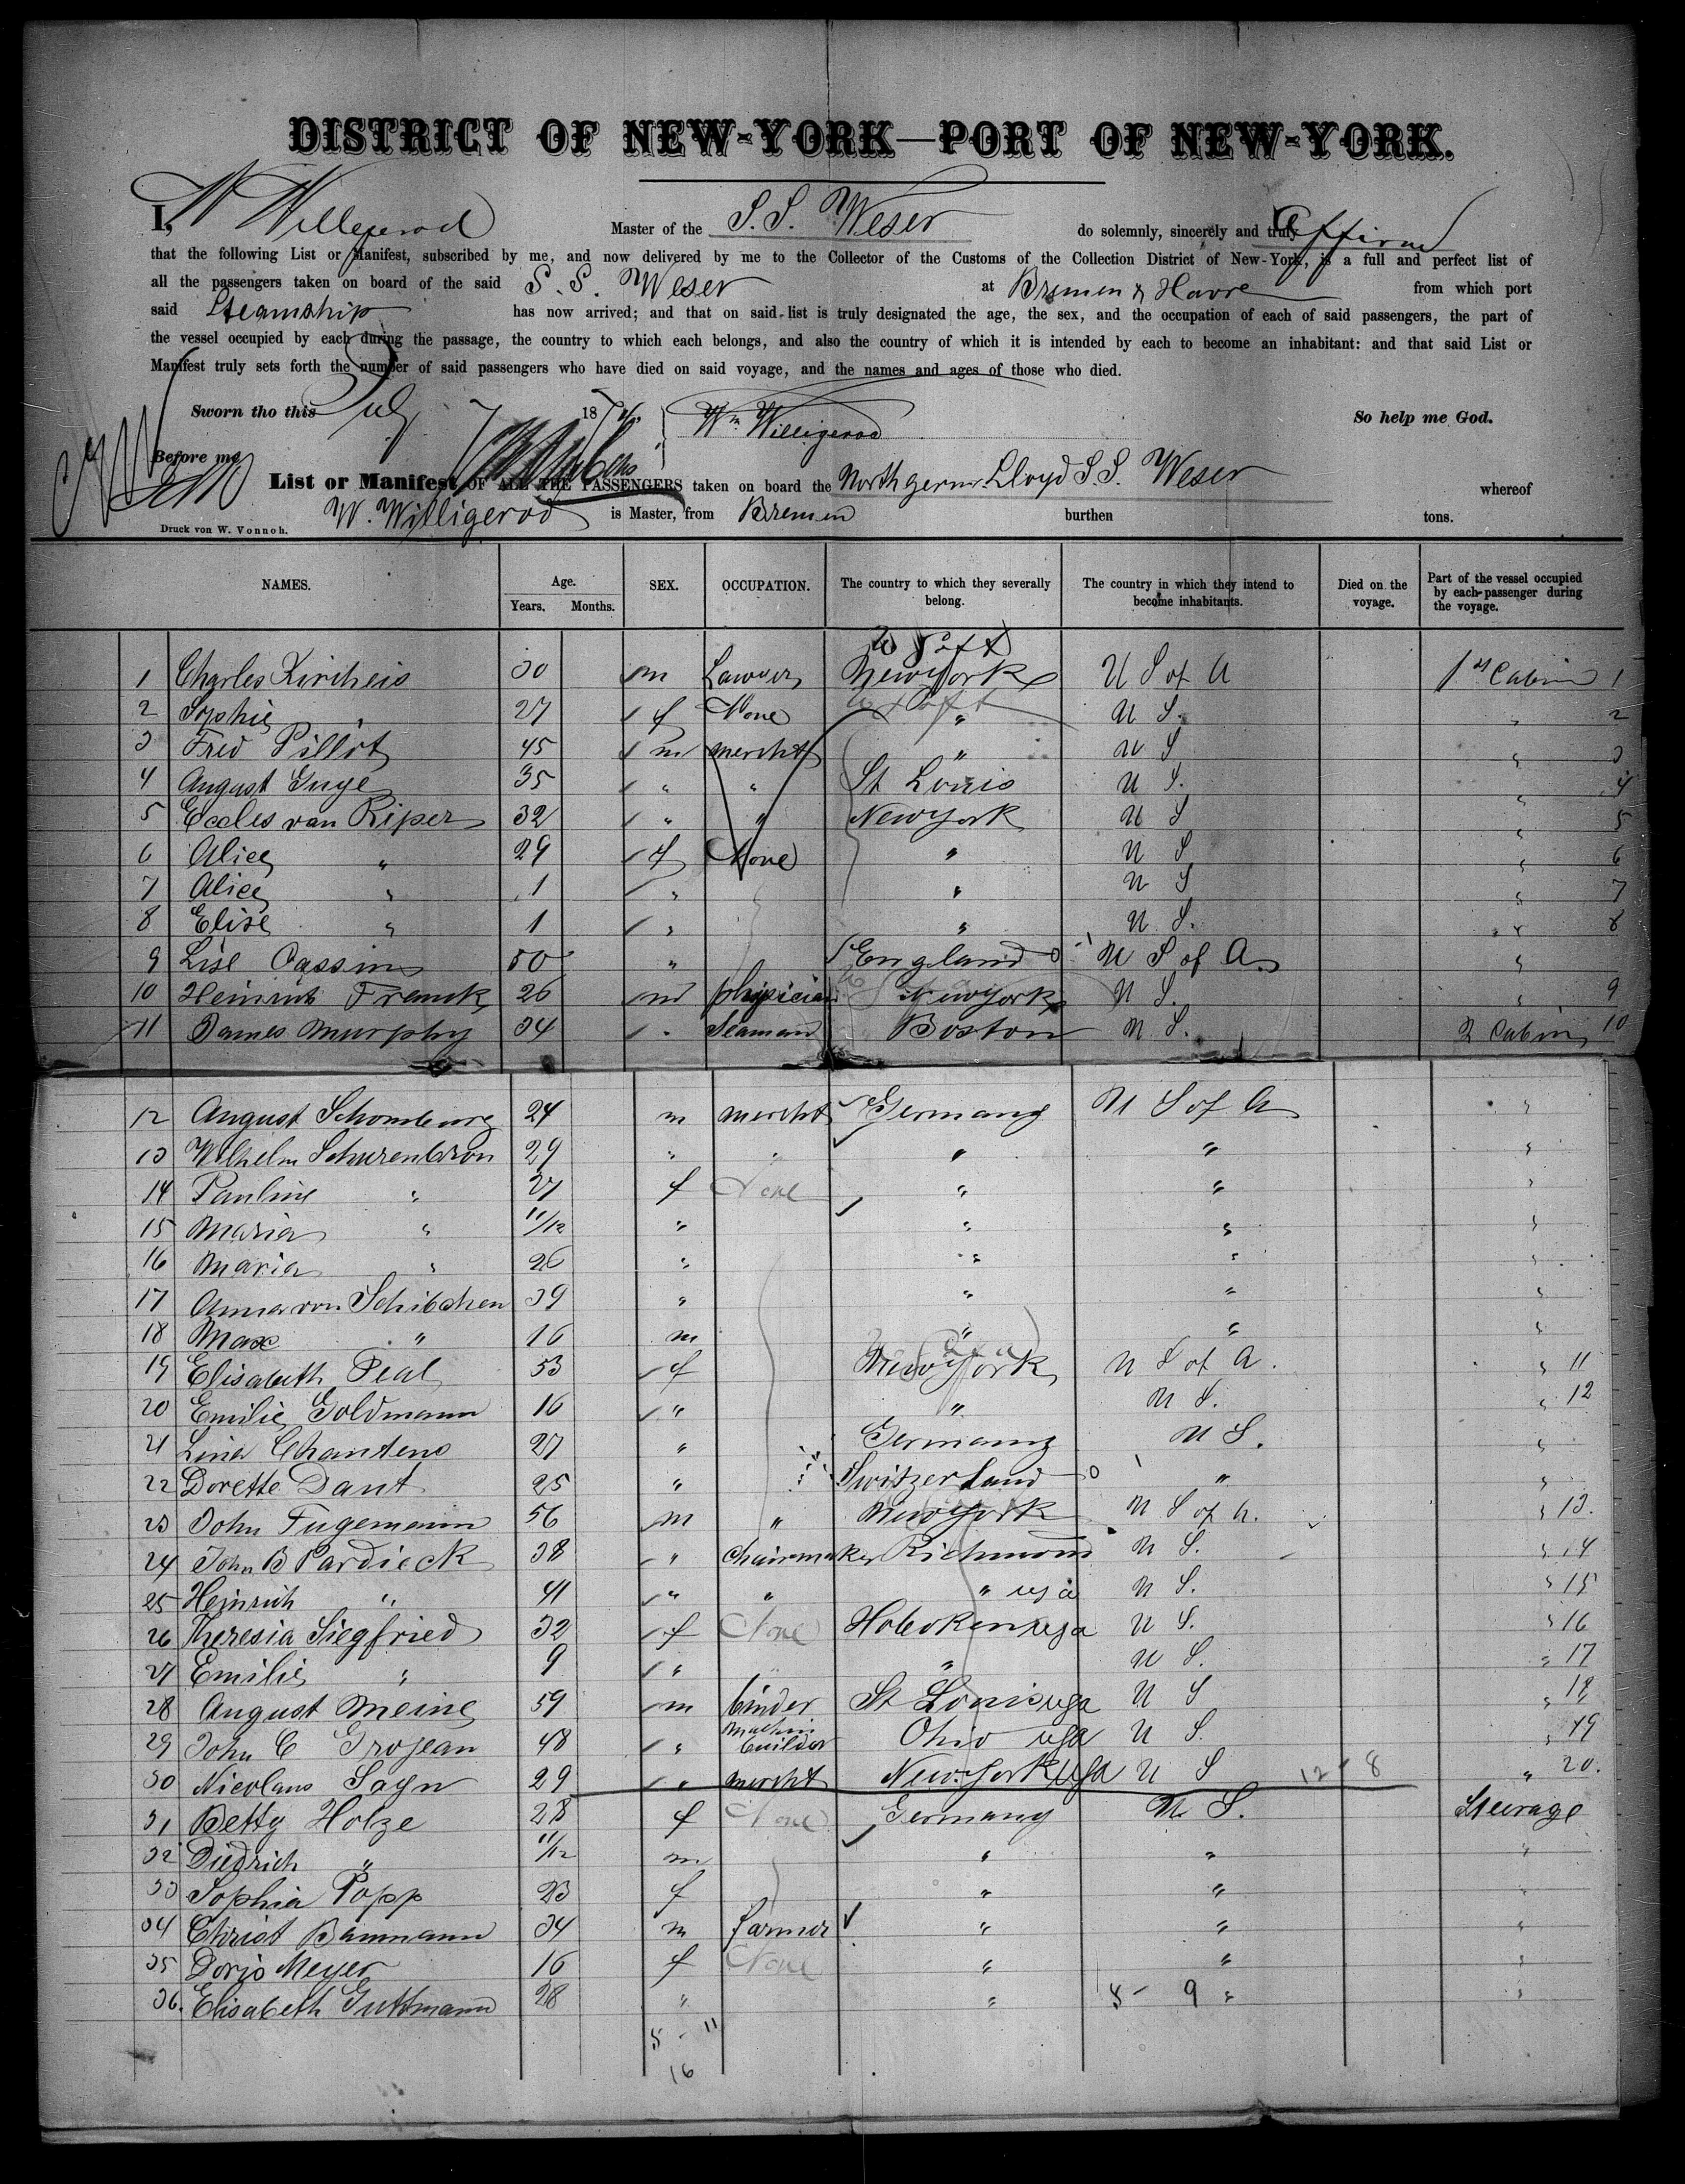 DISTRICT OF NEW-YORK—PORT OF NEW-YORK.
I, W Willigerod Master of the S.S. Weser do solemnly, sincerely and truly Affirm
that the following List or Manifest, subscribed by me, and now delivered by me to the Collector of the Customs of the Collection District of New-York, is a full and perfect list of
all the passengers taken on board of the said S.S. Weser at Bremen & Havre from which port
said Steamship has now arrived; and that on said list is truly designated the age, the sex, and the occupation of each of said passengers, the part of
the vessel occupied by each during the passage, the country to which each belongs, and also the country of which it is intended by each to become an inhabitant: and that said List or
Manifest truly sets forth the number of said passengers who have died on said voyage, and the names and ages of those who died.
Sworn tho this July 7 187 Wm Willigerod So help me God.
Before me
List or Manifest OF ALL THE PASSENGERS taken on board the North germ. Lloyd S.S. Weser whereof
W. Willigerod is Master, from Bremen burthen tons.
Druck von W. Vonnoh.
NAMES. Age. Years. Months. SEX. OCCUPATION. The country to which they severally belong. The country in which they intend to become inhabitants. Died on the voyage. Part of the vessel occupied by each passenger during the voyage.
1 Charles Kircheis 30 m Lawyer New York U S of A 1st Cabin 1
2 Sophie " 27 f None " U S. " 2
3 Fred Pillot 45 m mercht " U S " 3
4 August Guye 35 " " St Louis U S. " 4
5 Eccles van Riper 32 " " New York U S " 5
6 Alice " 29 f None " U S " 6
7 Alice " 1 " " U S " 7
8 Elise " 1 " " U S. " 8
9 Lise Cassin 50 " England U S of A "
10 Heinrich Franck 26 m physician New York U S. " 9
11 James Murphy 34 " Seaman Boston U S. 2 Cabin 10
12 August Schomburg 24 m mercht Germany U S of A "
13 Wilhelm Schurenbron 29 " " " " "
14 Pauline " 27 f None " " "
15 Maria " 11/12 " " " "
16 Maria " 26 " " " "
17 Anna von Schibchen 39 " " " "
18 Max " 16 m " " "
19 Elisabeth Peal 53 f New York U S of A. " 11
20 Emilie Goldmann 16 " " U S. " 12
21 Lina Chanteno 27 " Germany U S. "
22 Dorette Dant 25 " Switzerland " "
23 John Fugemann 56 m " New York U S of A. " 13.
24 John B Pardieck 38 " chairmaker Richmond U S. " 14
25 Heinrich " 41 " " " usa U S. " 15
26 Theresia Siegfried 32 f None Hoboken usa U S. " 16
27 Emilie " 9 " " U S. " 17
28 August Meine 59 m binder St Louis usa U S " 18
29 John C Grojean 48 " machin builder Ohio usa U S. " 19
30 Nicolaus Sayn 29 " mercht New York usa U S 12 8 " 20.
31 Betty Holze 28 f None Germany U S. Steerage
32 Diedrich " 11/12 m " " "
33 Sophia Popp 23 f " " "
34 Christ Bammann 34 m farmer " " "
35 Doris Meyer 16 f None " " "
36. Elisabeth Guttmann 28 " " 5 - 9 " "
5 - 11
16